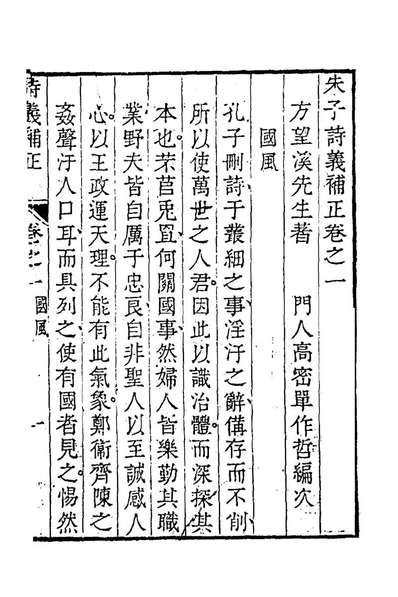 朱子詩義補正卷之一
方望溪先生著　門人高密單作哲編次
國風
孔子刪詩于叢細之事淫汙之辭備存而不削
所以使萬世之人君因此以識治體而深探其
本也芣苢兎罝何關國事然婦人皆樂勤其職
業野夫皆自厲于忠良自非聖人以至誠感人
心以王政運天理不能有此氣象鄭衞齊陳之
姦聲汙人口耳而具列之使有國者見之惕然
詩義補正　卷之一　國風　一